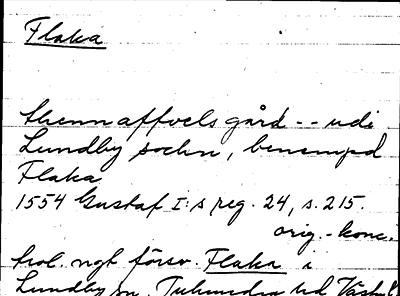 Flaka
thenn affvels gård -- udi
Lundby sochn, benempd
Flaka
1554 Gustaf I:s reg. 24, s. 215.
orig.-konc.
trol. ngt försv. Flaka i
Lundby sn, Tuhundra hd